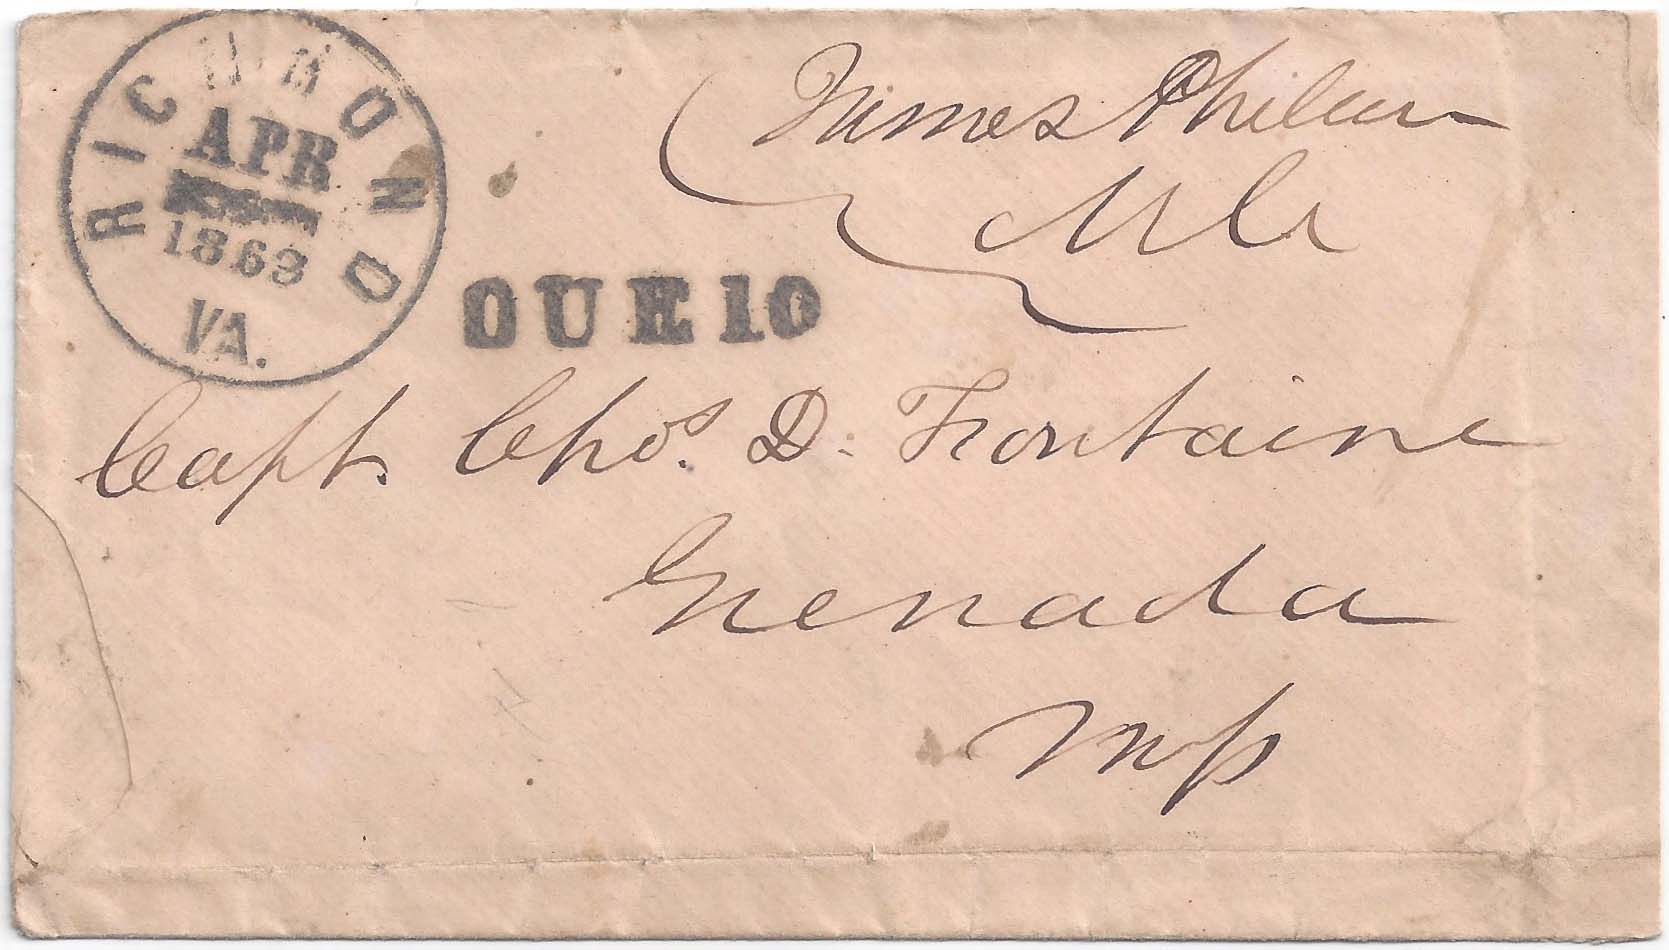 RICHMOND
APR
1863
VA.
DUE 10
James Phelan
M C
Capt. Chas. D. Fontaine
Grenada
Mps